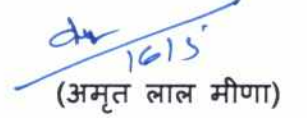 1615
(अमृत लाल मीणा)